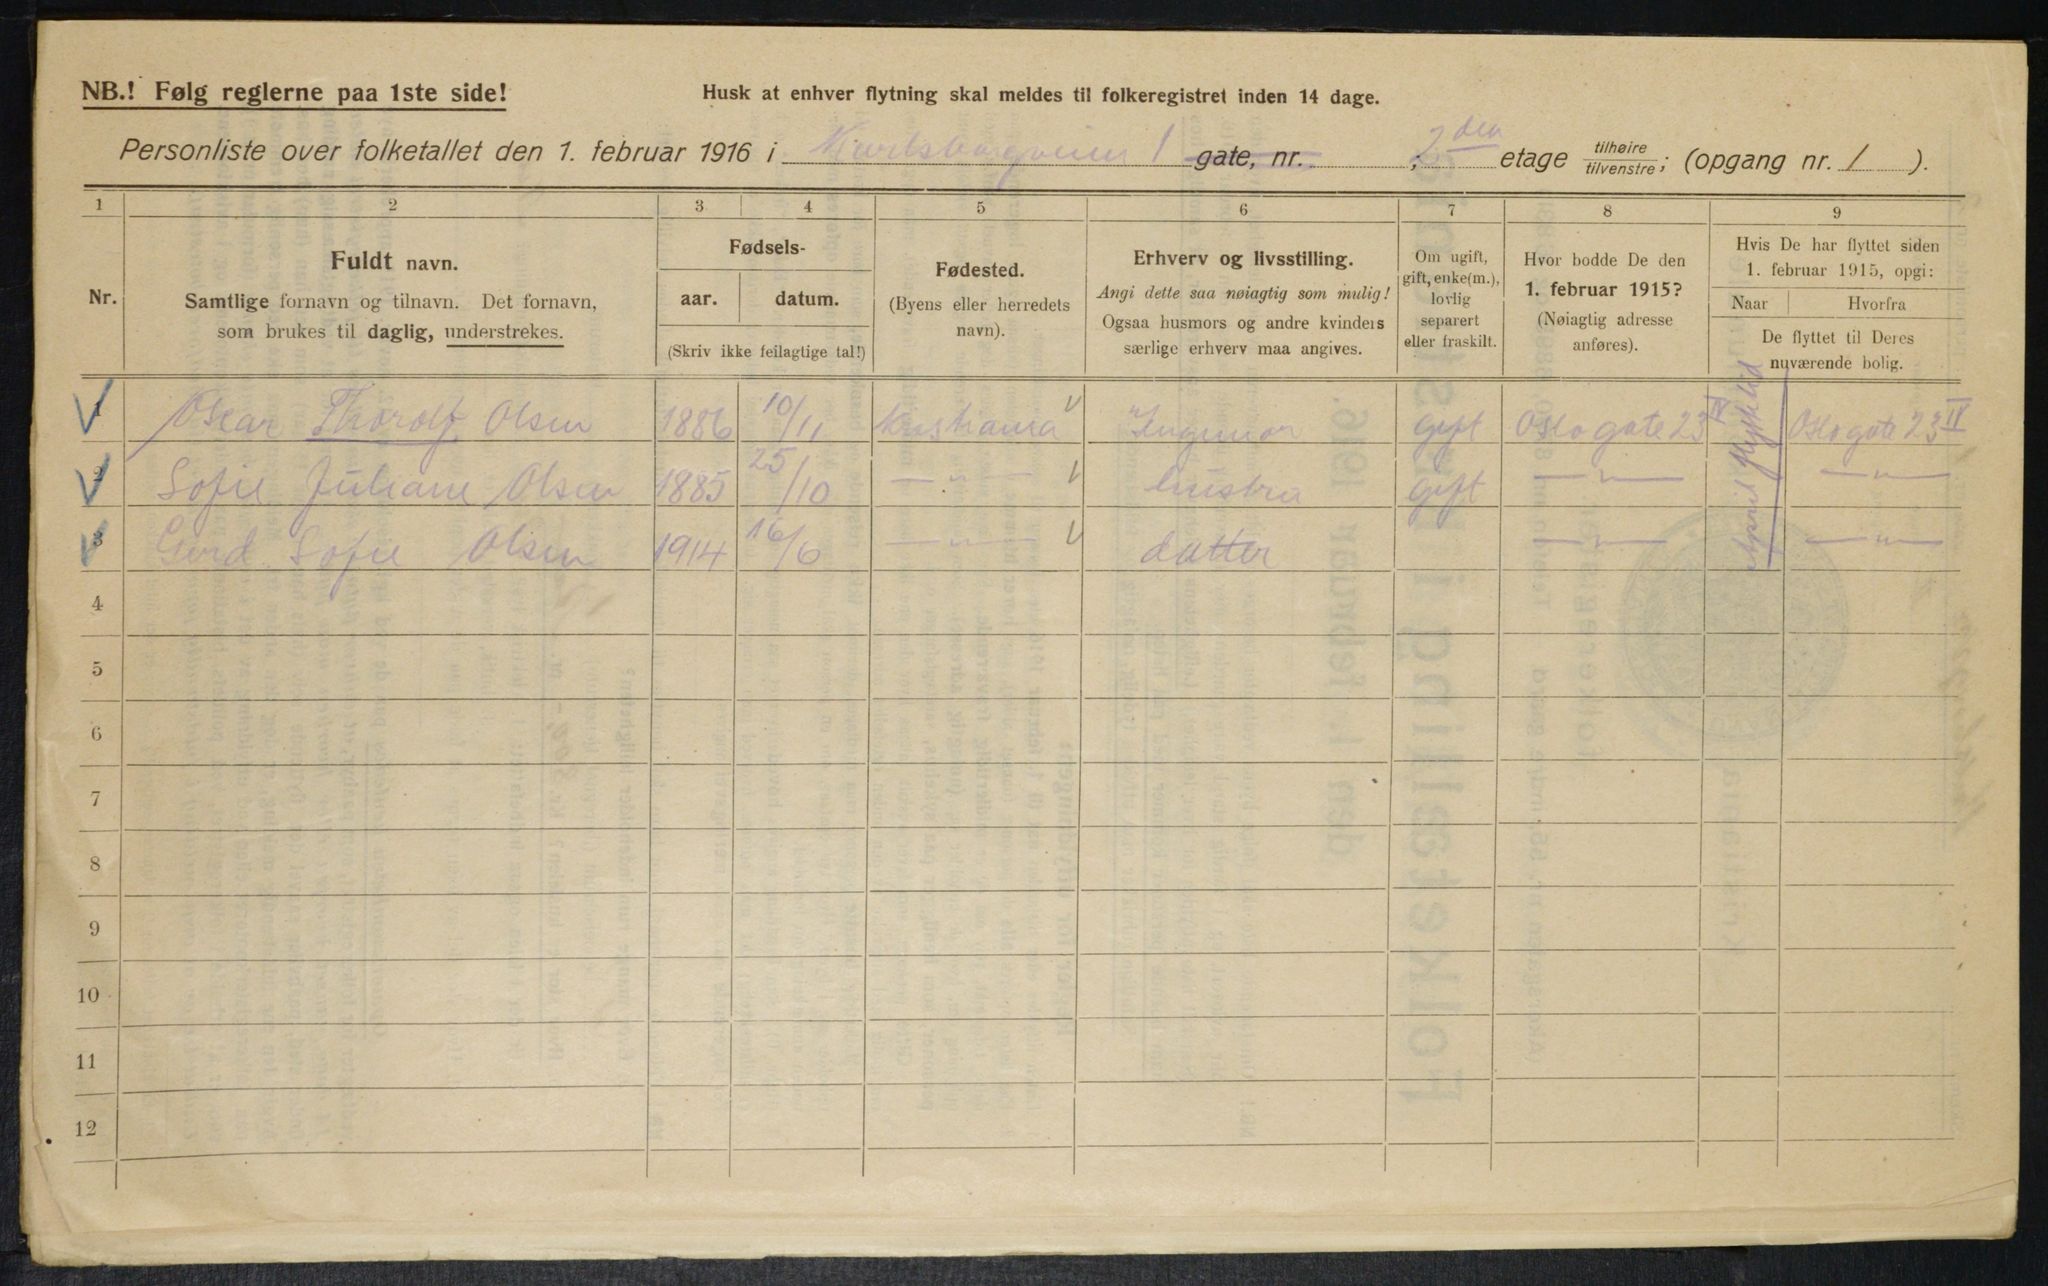 NB.! Følg reglerne paa 1ste side!
Husk at enhver flytning skal meldes til folkeregistret inden 14 dage.
Personliste over folketallet den 1. februar 1916 i Karlsborgveien 1 gate, nr. ; 2den etage tilhøire/tilvenstre; (opgang nr. 1 ).
1 2 3 4 5 6 7 8 9
Nr.
Fuldt navn.
Samtlige fornavn og tilnavn. Det fornavn,
som brukes til daglig, understrekes.
Fødsels-
aar. datum.
(Skriv ikke feilagtige tal!)
Fødested.
(Byens eller herredets
navn).
Erhverv og livsstilling.
Angi dette saa nøiagtig som mulig!
Ogsaa husmors og andre kvinders
særlige erhverv maa angives.
Om ugift,
gift, enke(m.),
lovlig
separert
eller fraskilt.
Hvor bodde De den
1. februar 1915?
(Nøiagtig adresse
anføres).
Hvis De har flyttet siden
1. februar 1915, opgi:
Naar Hvorfra
De flyttet til Deres
nuværende bolig.
1 Oscar Thorolf Olsen 1886 10/11 Kristiania Ingeniør gift Oslo gate 23 IV Oslo gate 23 IV
2 Sofie Juliane Olsen 1885 25/10 — " — hustru gift — " — — " —
3 Gerd Sofie Olsen 1914 16/6 — " — datter — " — — " —
April
4
5
6
7
8
9
10
11
12